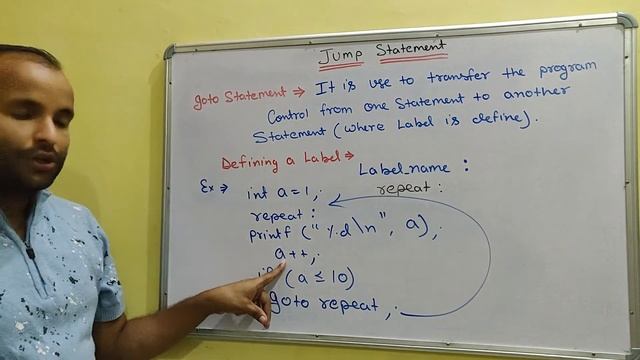 Jump Statement
goto Statement → It is use to transfer the program
Control from one Statement to another
Statement (where Label is define).
Defining a Label →
Label_name :
Ex → int a = 1;
repeat :
repeat :
printf ("%d\n", a);
a++;
if (a ≤ 10)
goto repeat;